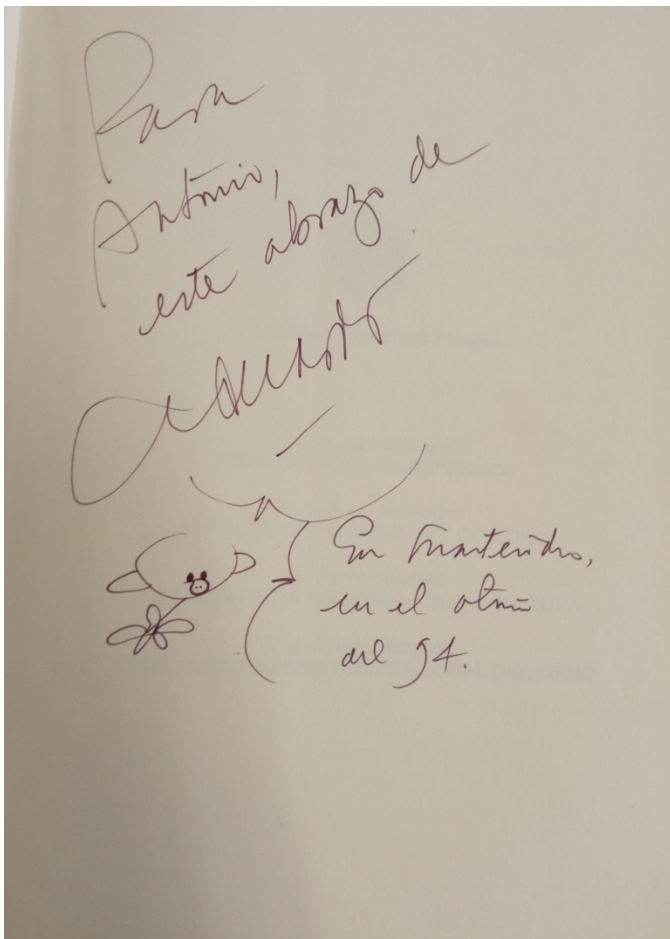 Para
Antonio,
este abrazo de
Eduardo
En Montevideo,
en el otoño
del 94.